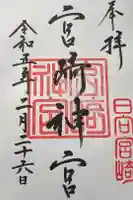 奉拝
日向宮崎
宮崎神宮
令和五年二月二十六日